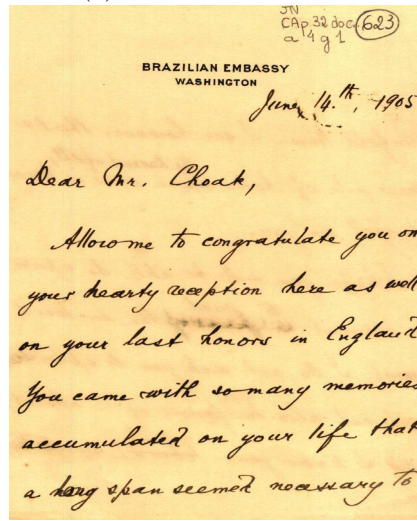 JN
CAp. 32 doc. 623
a 4 g 1
BRAZILIAN EMBASSY
WASHINGTON
June 14.th, 1905
Dear Mr. Choak,
Allow me to congratulate you on
your hearty reception here as well
on your last honors in England
You came with so many memories
accumulated on your life that
a long span seemed necessary to